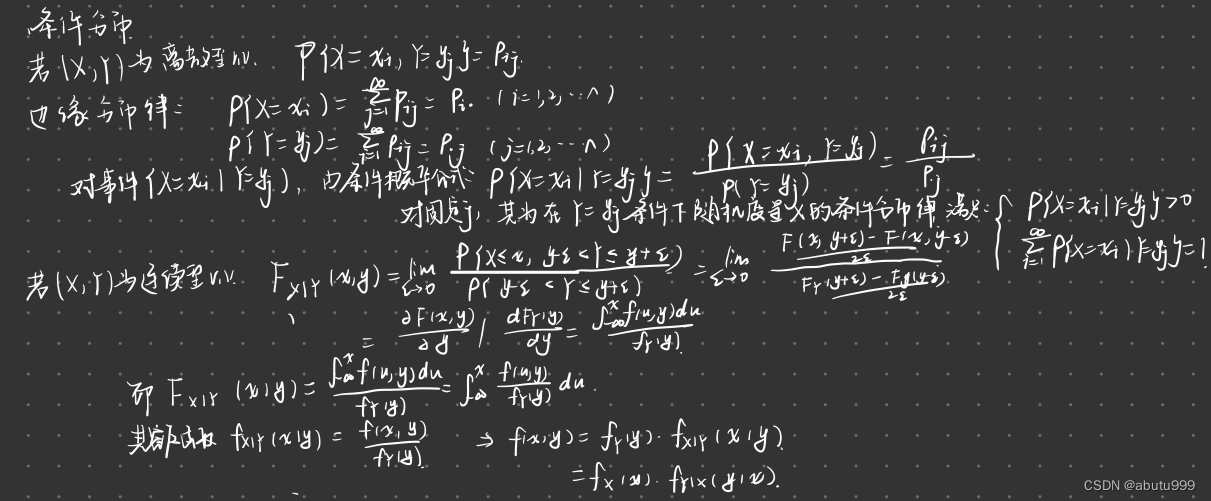 条件分布
若(X,Y)为离散型r.v. P{X=xi, Y=yj}=Pij.
边缘分布律: P(X=xi)=∑_{j=1}^{∞} Pij=Pi. (i=1,2,…n)
P{Y=yj}=∑_{i=1}^{∞} Pij=Pij (j=1,2,…n)
对事件{X=xi|Y=yj}, 由条件概率公式: P{X=xi|Y=yj}=P{X=xi, Y=yj}/P{Y=yj}=Pij/Pj
对固定j, 其为在Y=yj条件下随机变量X的条件分布律 满足: { P{X=xi|Y=yj}>0
∑_{i=1}^{∞} P{X=xi|Y=yj}=1
若(X,Y)为连续型r.v. F_{X|Y}(x,y)=lim_{ε→0} P{X≤x, y-ε<Y≤y+ε}/P{y-ε<Y≤y+ε}=lim_{ε→0} [F(x,y+ε)-F(x,y-ε)]/2ε / [F_Y(y+ε)-F_y(y-ε)]/2ε
= ∂F(x,y)/∂y / dF_Y(y)/dy = ∫_{-∞}^{x} f(u,y)du / f_Y(y).
即 F_{X|Y}(x|y)=∫_{-∞}^{x} f(u,y)du / f_Y(y)=∫_{-∞}^{x} f(u,y)/f_Y(y) du.
其 f_{X|Y}(x|y)=f(x,y)/f_Y(y) ⇒ f(x,y)=f_Y(y)·f_{X|Y}(x|y)
=f_X(x)·f_{Y|X}(y|x).
CSDN @abutu999